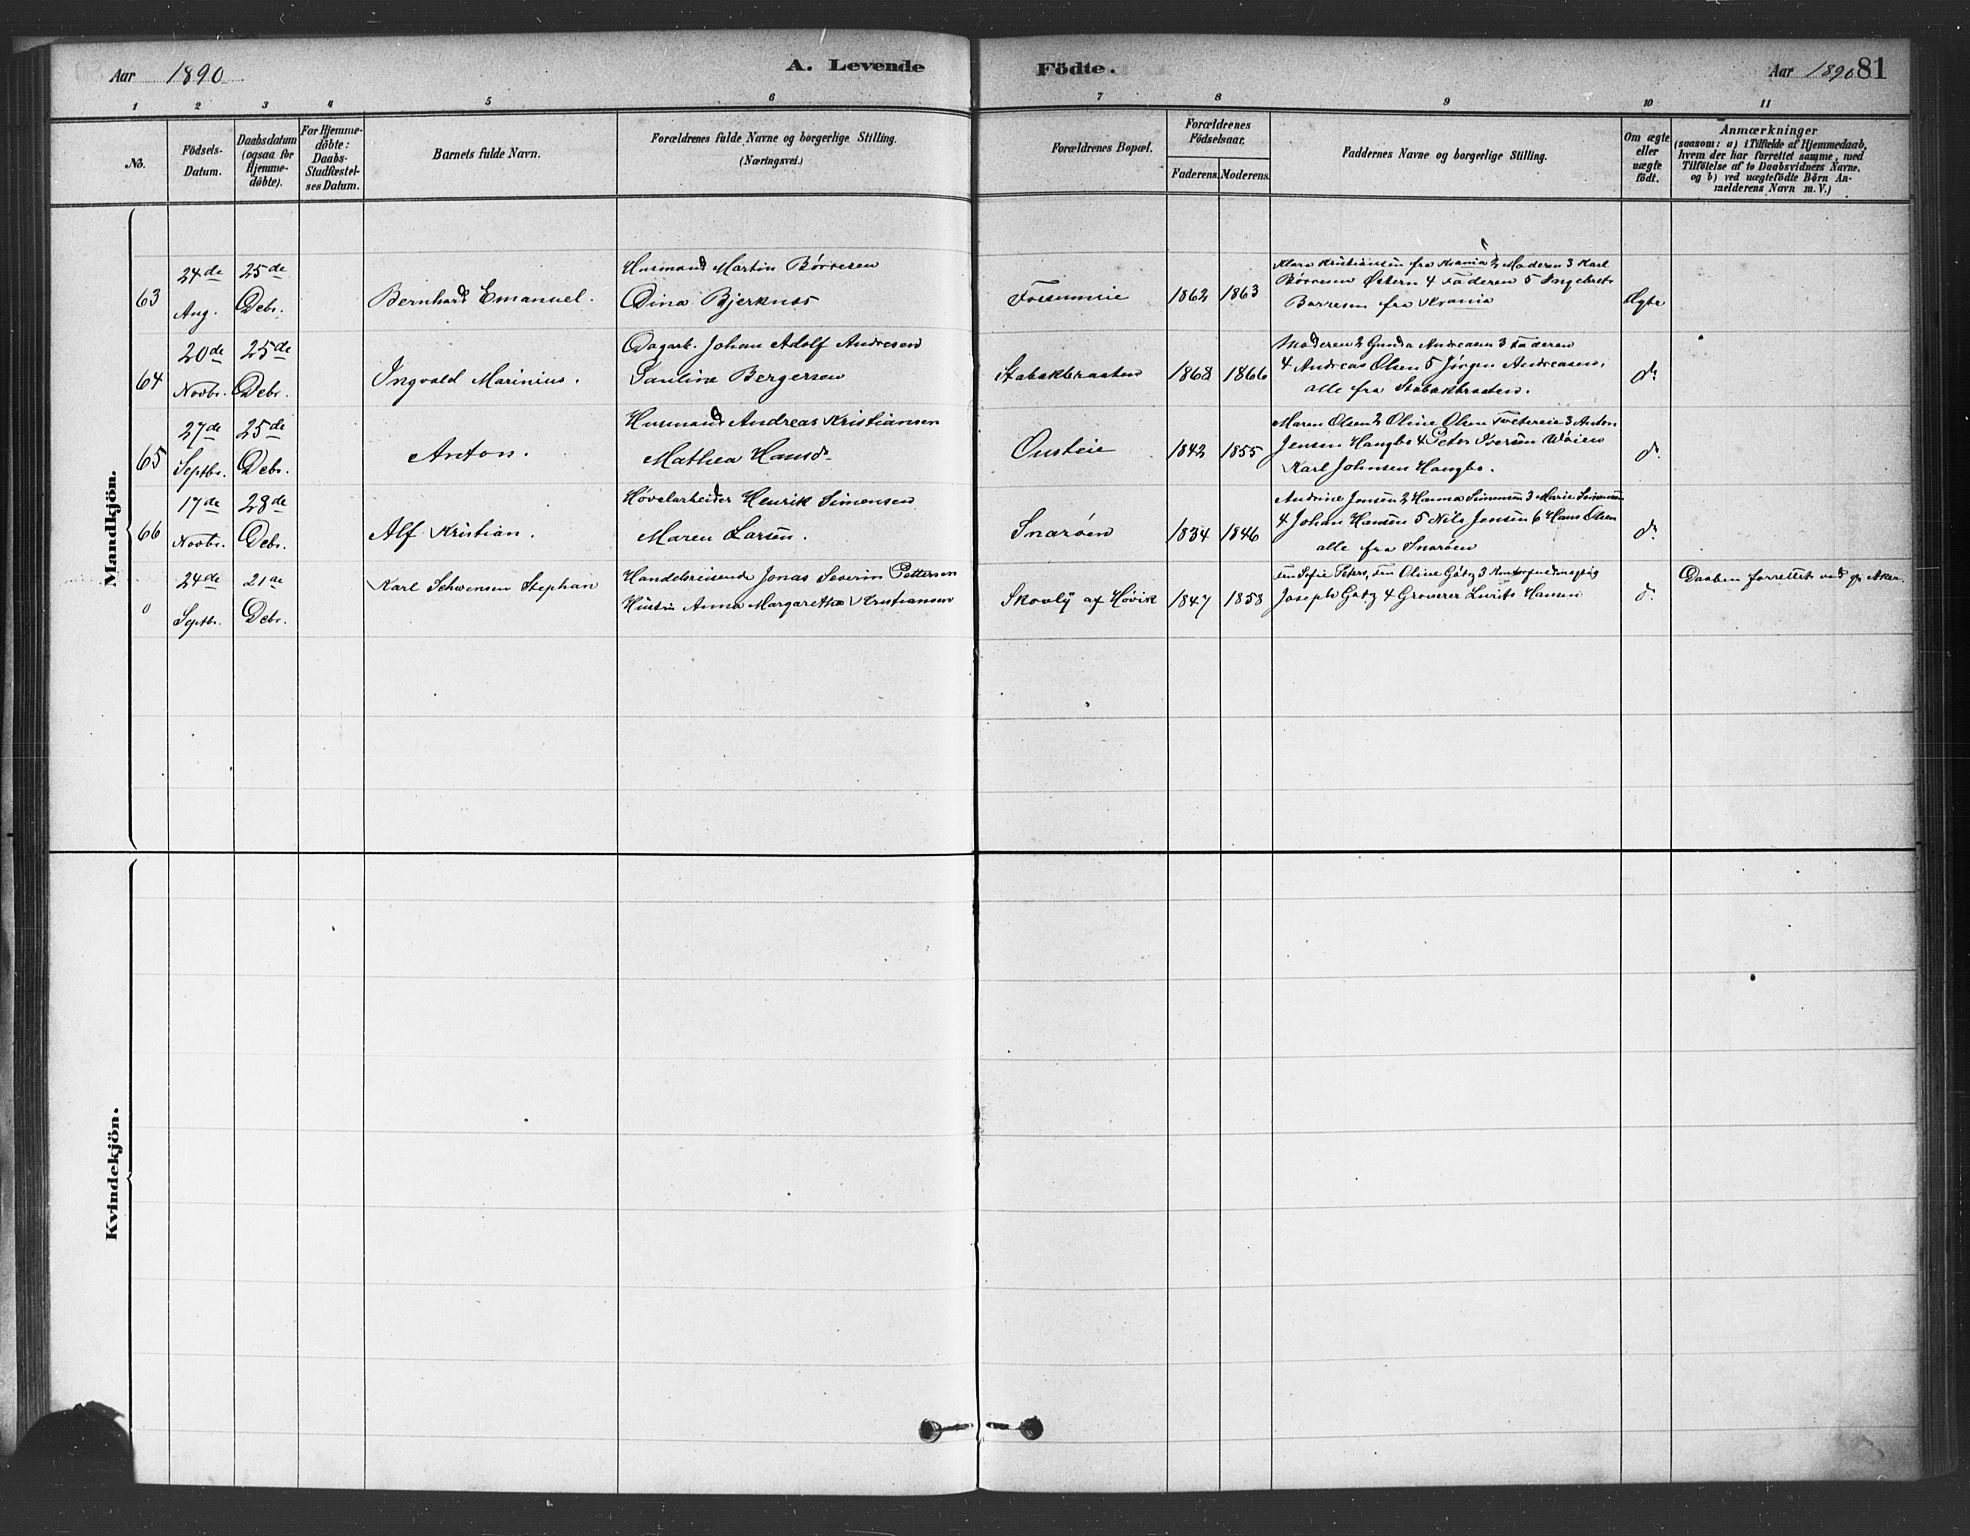 Aar 1890
A. Levende
Födte.
Aar 1890 81
1 2 3 4 5 6 7 8 9 10 11
No.
Födsels-
Datum.
Daabsdatum
(ogsaa for
Hjemme-
döbte).
For Hjemme-
döbte:
Daabs-
Stadfæstel-
ses Datum.
Barnets fulde Navn.
Forældrenes fulde Navne og borgerlige Stilling.
(Næringsvei.)
Forældrenes Bopæl.
Forældrenes
Födselsaar,
Faderens. Moderens.
Faddernes Navne og borgerlige Stilling.
Om ægte
eller
uægte
födt.
Anmærkninger
(saasom: a) i Tilfælde af Hjemmedaab,
hvem der har forrettet samme, med
Tilföielse af to Daabsvidners Navne,
og b) ved uægtefödte Börn An-
mælderens Navn m. V.)
Mandkjön.
63
24de
Aug.
25de
Debr.
Bernhard Emanuel.
Husmand Martin Børresen
Dina Bjerknes
Fossumeie
1862 1863
Klara Kristiansen fra Krania 2 Moderen 3 Karl
Børresen Østern 4 Faderen 5 Ingebret
Børresen fra Krania
Ægte
64
20de
Novbr.
25de
Debr.
Ingvald Marinius.
Dagarb. Johan Adolf Andresen
Pauline Bergersen
Stabækbraaten
1868 1866
Moderen 2 Gunda Andreasen 3 Faderen
4 Andreas Olsen 5 Jørgen Andreasen,
alle fra Stabækbraaten.
do
65
27de
Septbr.
25de
Debr.
Anton.
Husmand Andreas Kristiansen
Mathea Hansdr
Ousteie
1842 1855
Maren Olsen 2 Oline Olsen 3 Anton
Jensen Haugbo 4 Peter Iversen Wøien
Karl Johnsen Haugbo.
do
66
17de
Novbr.
28de
Debr.
Alf Kristian.
Høvelarbeider Henrik Simensen
Maren Larsen.
Snarøen
1834 1846
Andrine Jensen 2 Hanna Simensen 3 Marie Simensen
4 Johan Hansen 5 Nils Jensen 6 Hans Olsen
alle fra Snarøen
do
0
24de
Septbr.
21de
Debr.
Karl Schwensen Stephan
Handelsreisende Jonas Severin Pettersen
Hustru Anna Margarethe Kristiansen
Skovly af Høvik
1847 1858
Fru Sofie Peters, Fru Oline Götz 3
Joseph Götz 4 Groverer Lurits Hansen
do
Daaben forrettet ved Aker.
Kvindekjön.